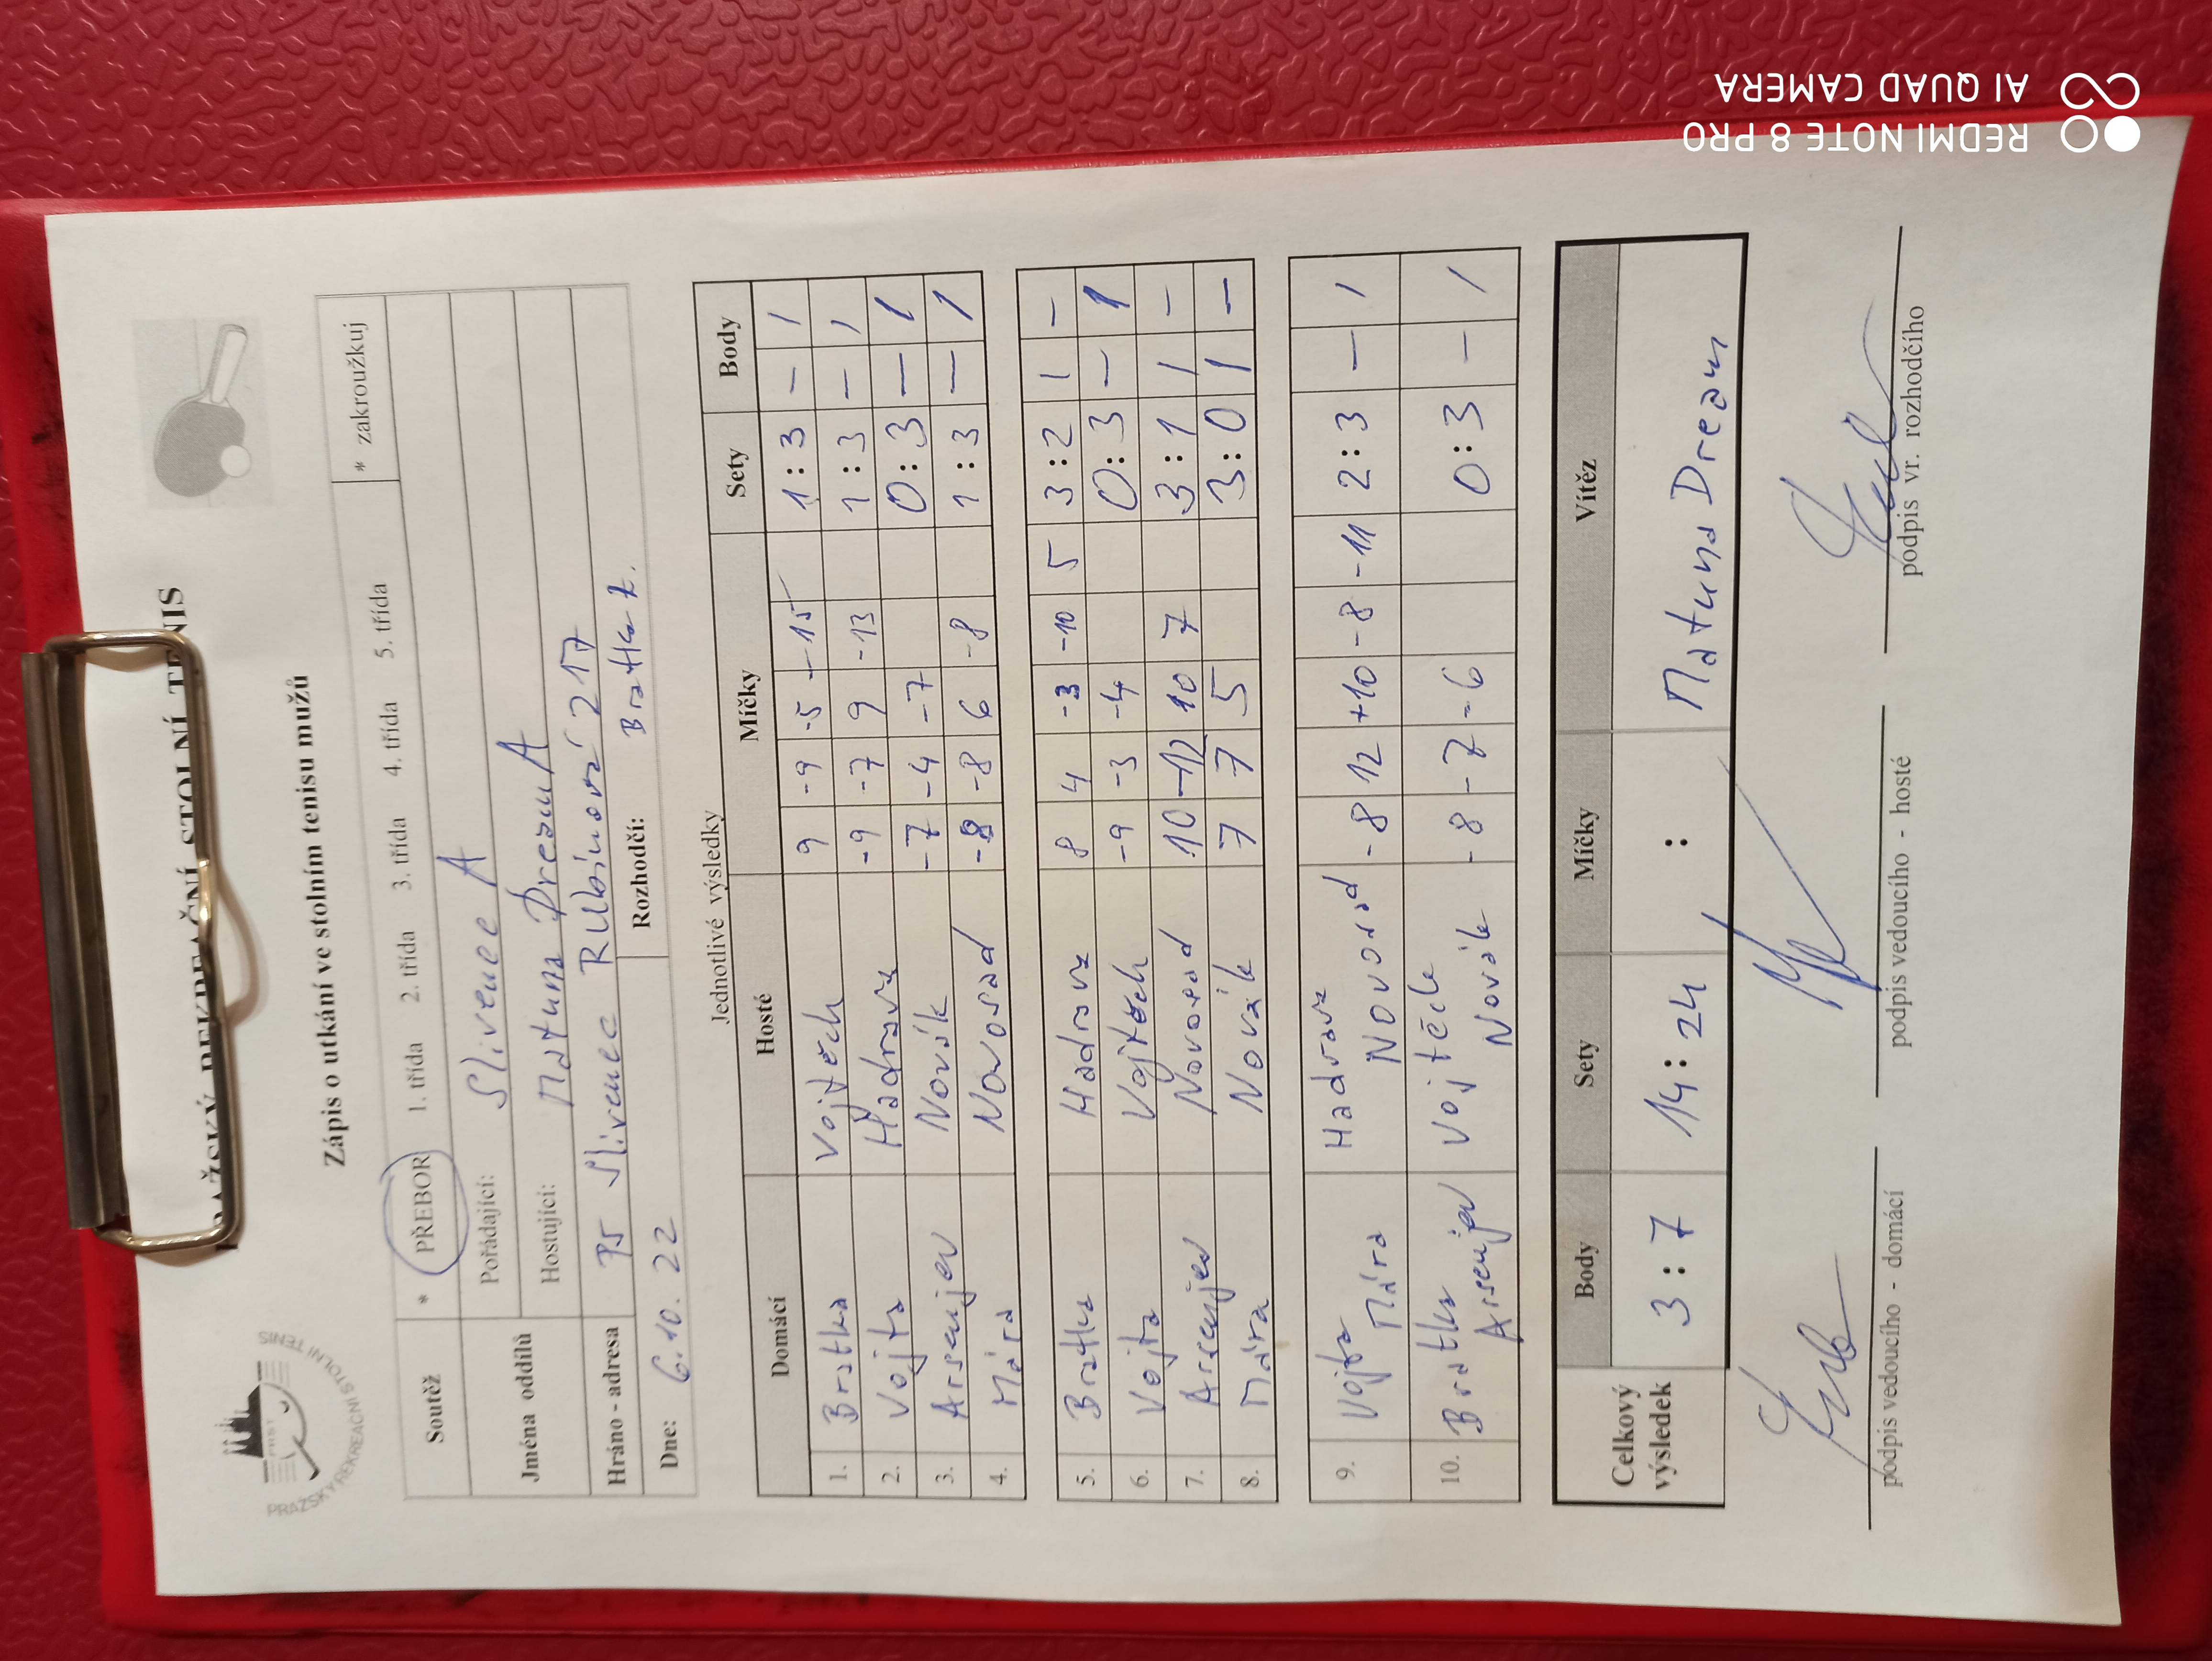 PRAŽSKÝ REKREAČNÍ STOLNÍ TENIS
PRAŽSKÝ REKREAČNÍ STOLNÍ TENIS
PRST
Zápis o utkání ve stolním tenisu mužů
Soutěž * PŘEBOR 1. třída 2. třída 3. třída 4. třída 5. třída * zakroužkuj
Jména oddílů Pořádající: Slivenec A
Hostující: Matuna Dream A
Hráno - adresa PS Slivenec RUbínová 217
Dne: 6.10.22 Rozhodčí: Bratka Z.
Jednotlivé výsledky
Domácí Hosté Míčky Sety Body
1. Bratka Vojtěch 9 -9 -5 -15 1:3 - 1
2. Vojta Hadrava -9 -7 9 -13 1:3 - 1
3. Arsenjev Novák -7 -4 -7 0:3 - 1
4. Mára Novosad -8 -8 6 -8 1:3 - 1
5. Bratka Hadrava 8 4 -3 -10 5 3:2 1 -
6. Vojta Vojtěch -9 -3 -4 0:3 - 1
7. Arsenjev Novosad 10 -12 10 7 3:1 1 -
8. Mára Novák 7 7 5 3:0 1 -
9. Vojta Hadrava -8 12 +10 -8 -11 2:3 - 1
Mára Novosad
10. Bratka Vojtěch -8 -7 -6 0:3 - 1
Arsenjev Novák
Celkový výsledek Body Sety Míčky Vítěz
3:7 14:24 : Matuna Dream
podpis vedoucího - domácí podpis vedoucího - hosté podpis vr. rozhodčího
REDMI NOTE 8 PRO
AI QUAD CAMERA